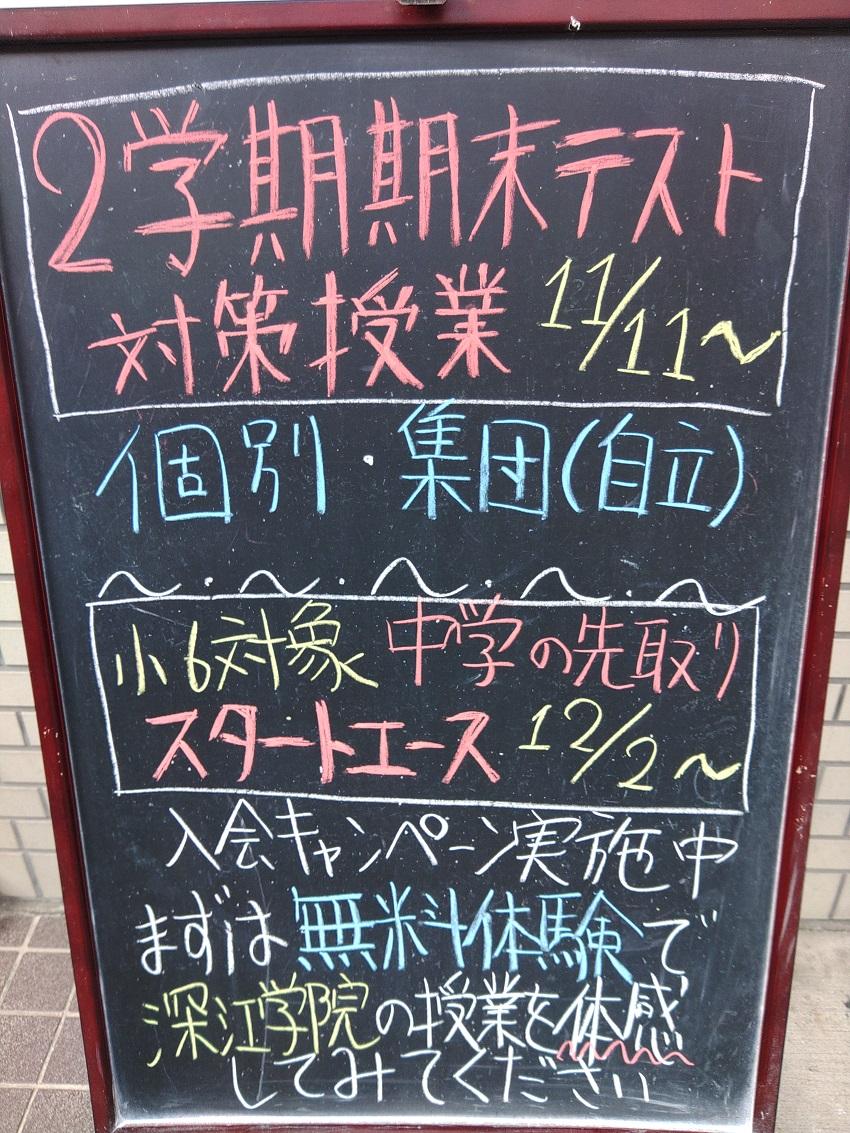 2学期期末テスト
対策授業 11/11～
個別・集団(自立)
～・～・～・～・～
小6対象 中学の先取り
スタートエース 12/2～
入会キャンペーン実施中
まずは無料体験で
深江学院の授業を体感
してみてください